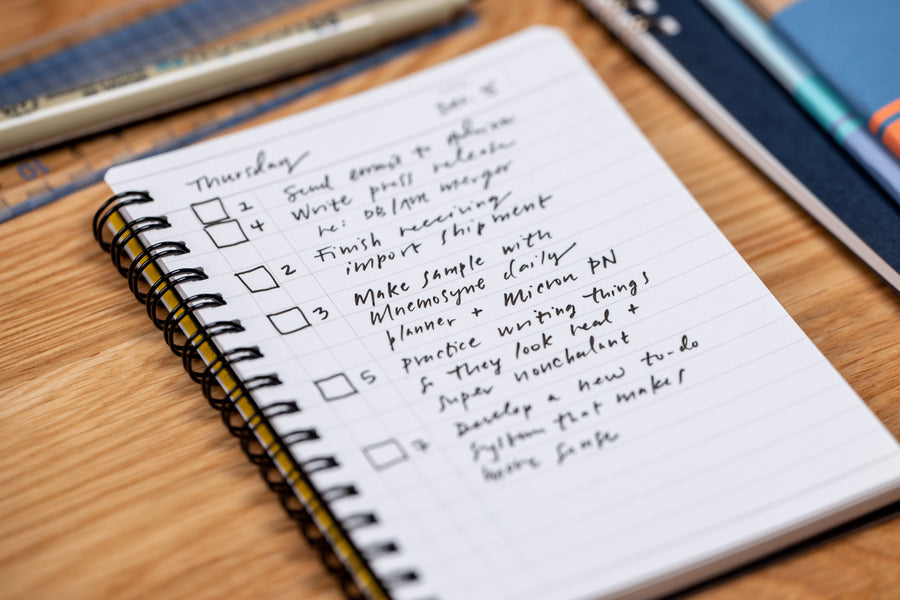 Thursday
1 Send email to
4 Write press release
re: DB/ merger
2 Finish receiving
import shipment
3 Make sample with
Mnemosyne daily
planner + Micron PN
5 practice writing things
so they look real +
super nonchalant
7 Develop a new to-do
system that makes
more sense